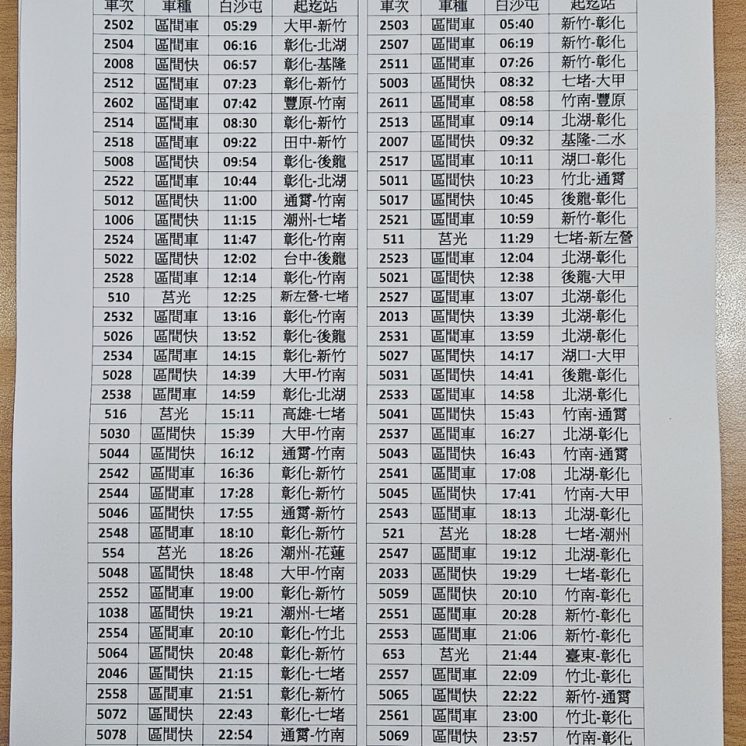 車次 車種 白沙屯 起迄站 車次 車種 白沙屯 起迄站
2502 區間車 05:29 大甲-新竹 2503 區間車 05:40 新竹-彰化
2504 區間車 06:16 彰化-北湖 2507 區間車 06:19 新竹-彰化
2008 區間快 06:57 彰化-基隆 2511 區間車 07:26 新竹-彰化
2512 區間車 07:23 彰化-新竹 5003 區間快 08:32 七堵-大甲
2602 區間車 07:42 豐原-竹南 2611 區間車 08:58 竹南-豐原
2514 區間車 08:30 彰化-新竹 2513 區間車 09:14 北湖-彰化
2518 區間車 09:22 田中-新竹 2007 區間快 09:32 基隆-二水
5008 區間快 09:54 彰化-後龍 2517 區間車 10:11 湖口-彰化
2522 區間車 10:44 彰化-北湖 5011 區間快 10:23 竹北-通霄
5012 區間快 11:00 通霄-竹南 5017 區間快 10:45 後龍-彰化
1006 區間快 11:15 潮州-七堵 2521 區間車 10:59 新竹-彰化
2524 區間車 11:47 彰化-竹南 511 莒光 11:29 七堵-新左營
5022 區間快 12:02 台中-後龍 2523 區間車 12:04 北湖-彰化
2528 區間車 12:14 彰化-竹南 5021 區間快 12:38 後龍-大甲
510 莒光 12:25 新左營-七堵 2527 區間車 13:07 北湖-彰化
2532 區間車 13:16 彰化-竹南 2013 區間快 13:39 北湖-彰化
5026 區間快 13:52 彰化-後龍 2531 區間車 13:59 北湖-彰化
2534 區間車 14:15 彰化-新竹 5027 區間快 14:17 湖口-大甲
5028 區間快 14:39 大甲-竹南 5031 區間快 14:41 後龍-彰化
2538 區間車 14:59 彰化-北湖 2533 區間車 14:58 北湖-彰化
516 莒光 15:11 高雄-七堵 5041 區間快 15:43 竹南-通霄
5030 區間快 15:39 大甲-竹南 2537 區間車 16:27 北湖-彰化
5044 區間快 16:12 通霄-竹南 5043 區間快 16:43 竹南-通霄
2542 區間車 16:36 彰化-新竹 2541 區間車 17:08 北湖-彰化
2544 區間車 17:28 彰化-新竹 5045 區間快 17:41 竹南-大甲
5046 區間快 17:55 通霄-新竹 2543 區間車 18:13 北湖-彰化
2548 區間車 18:10 彰化-新竹 521 莒光 18:28 七堵-潮州
554 莒光 18:26 潮州-花蓮 2547 區間車 19:12 北湖-彰化
5048 區間快 18:48 大甲-竹南 2033 區間快 19:29 七堵-彰化
2552 區間車 19:00 彰化-新竹 5059 區間快 20:10 竹南-彰化
1038 區間快 19:21 潮州-七堵 2551 區間車 20:28 新竹-彰化
2554 區間車 20:10 彰化-竹北 2553 區間車 21:06 新竹-彰化
5064 區間快 20:48 彰化-新竹 653 莒光 21:44 臺東-彰化
2046 區間快 21:15 彰化-七堵 2557 區間車 22:09 竹北-彰化
2558 區間車 21:51 彰化-新竹 5065 區間快 22:22 新竹-通霄
5072 區間快 22:43 彰化-七堵 2561 區間車 23:00 竹北-彰化
5078 區間快 22:54 通霄-竹南 5069 區間快 23:57 竹南-彰化